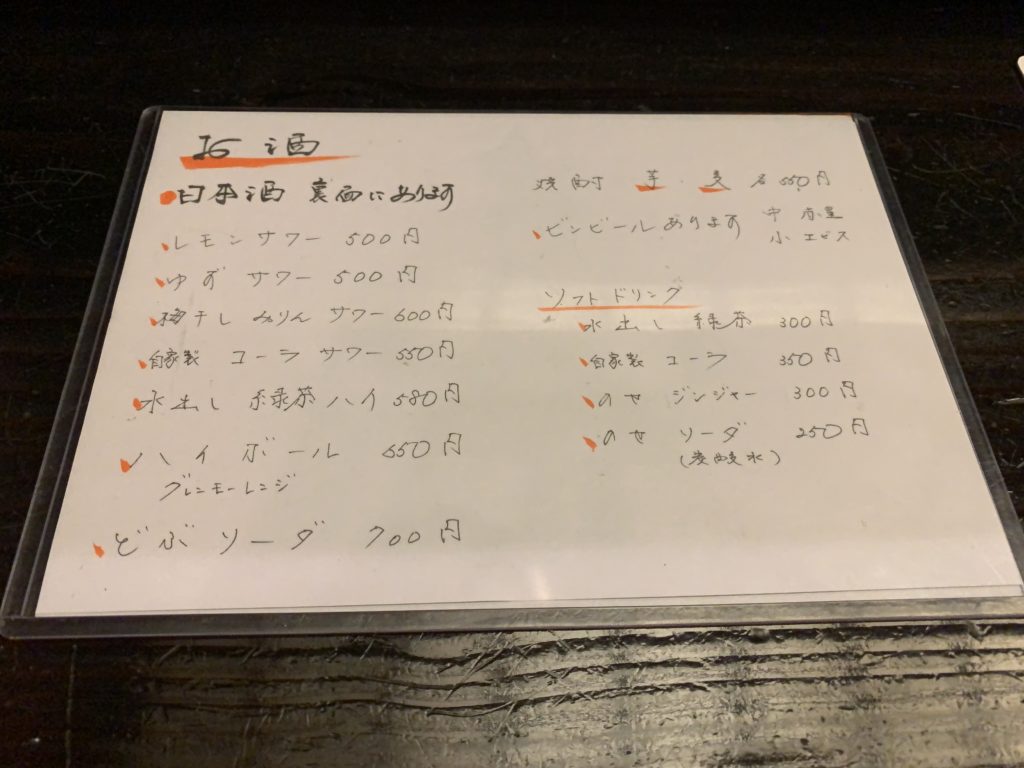 お酒
日本酒 裏面にあります
レモンサワー 500円
ゆず サワー 500円
梅干し みりん サワー 600円
自家製 コーラ サワー 550円
水出し 緑茶ハイ 580円
ハイボール 650円
グレンモーレンジ
どぶ ソーダ 700円
焼酎 芋・麦 各550円
ビンビールあります 中 赤星
小 エビス
ソフトドリング
水出し 緑茶 300円
自家製 コーラ 350円
のせ ジンジャー 300円
のせ ソーダ 250円
(炭酸水)